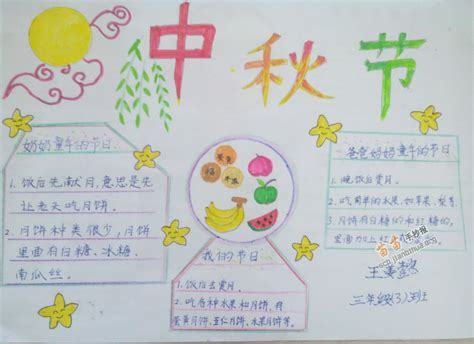 中秋节
奶奶童年的节日
1. 饭后先献月,意思是先
让老天吃月饼。
2. 月饼种类很少,月饼
里面有白糖、冰糖、
南瓜丝。
蛋黄
福
五仁
我们的节日
1. 饭后去赏月。
2. 吃各种水果和月饼,有
蛋黄月饼、五仁月饼、水果月饼等。
爸爸妈妈童年的节日
1. 晚饭后赏月。
2. 吃简单的水果,如苹果、梨等。
3. 月饼有白糖的和红糖的,
里面加上红
苗苗手抄报
三年级(3)班